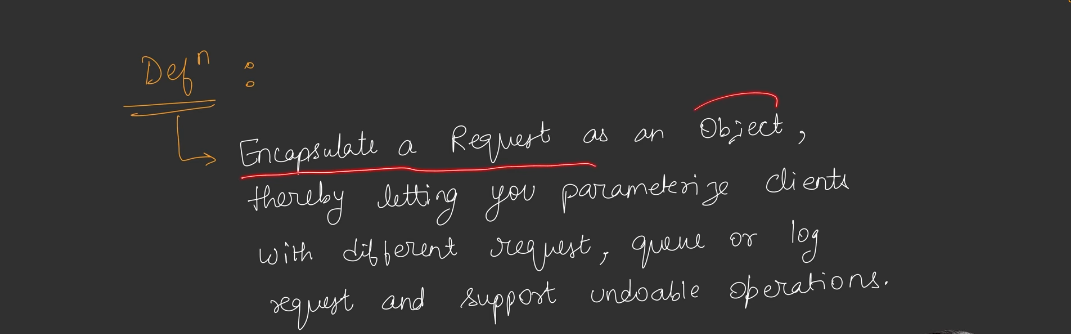 Defⁿ :
Encapsulate a Request as an Object,
thereby letting you parameterize clients
with different request, queue or log
request and support undoable operations.